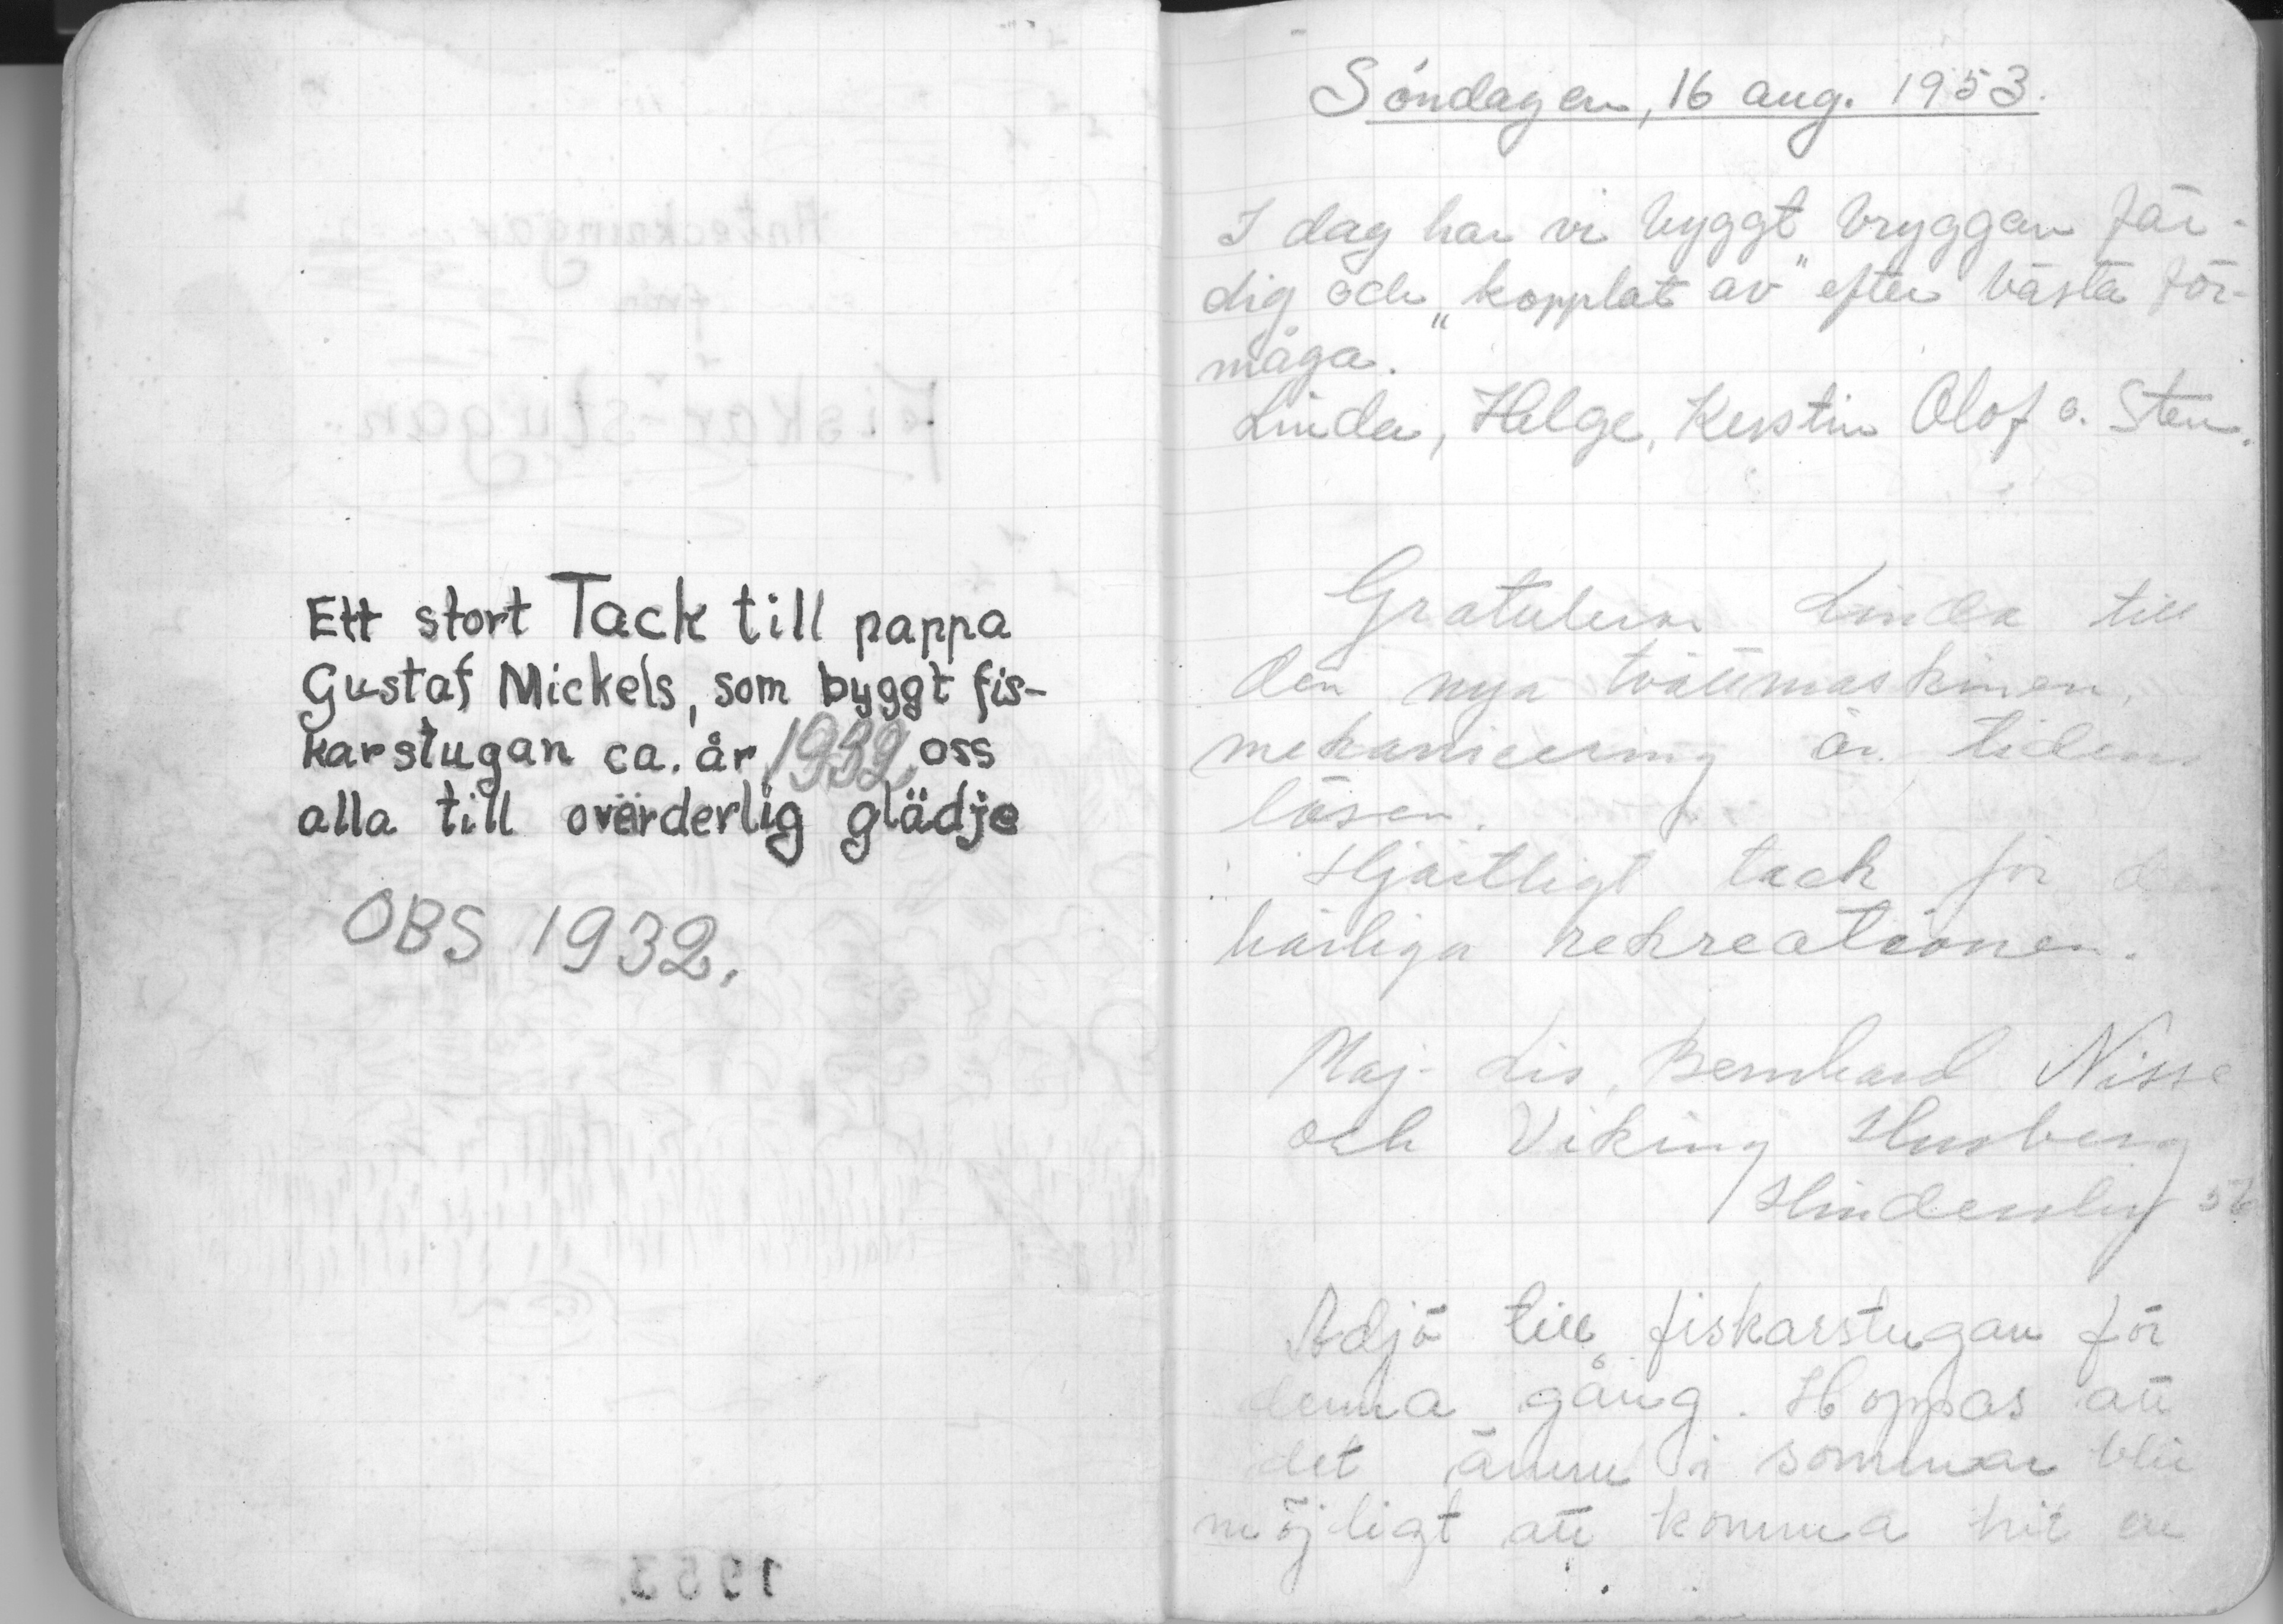 Ett stort Tack till pappa
Gustaf Mickels, som byggt fis-
karstugan ca. år 1932, oss
alla till ovärderlig glädje
OBS 1932.
Söndagen, 16 aug. 1953.
I dag har vi byggt bryggan fär-
dig och „kopplat av" efter bästa för-
måga.
Linda, Helge, Kerstin Olof o. Sten.
Gratulerar Linda till
den nya tvättmaskinen,
mekanisering är tidens
lösen.
Hjärtligt tack för den
härliga rekreationen.
Maj-Lis, Bernhard Nisse
och Viking Husberg
Hindersby 56
Adjö till fiskarstugan för
denna gång. Hoppas att
det ännu i sommar blir
möjligt att komma hit en